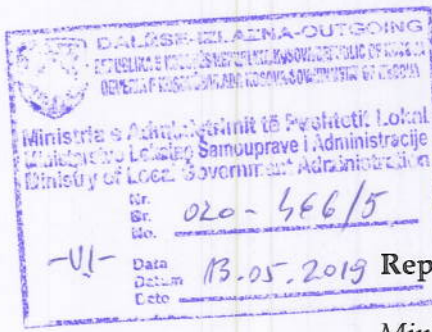 DALËSE-IZLAZNA-OUTGOING
Ministria e Administrimit të Pushtetit Lokal
Ministarstvo Lokalne Samouprave i Administracije
Ministry of Local Government Administration
Nr.
Br.
No. 020-466/5
-VI- Data
Datum 13.05.2019
Date
Rep
Min